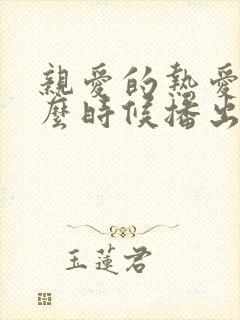 親愛的熱愛
麼時候播出
玉蓮君